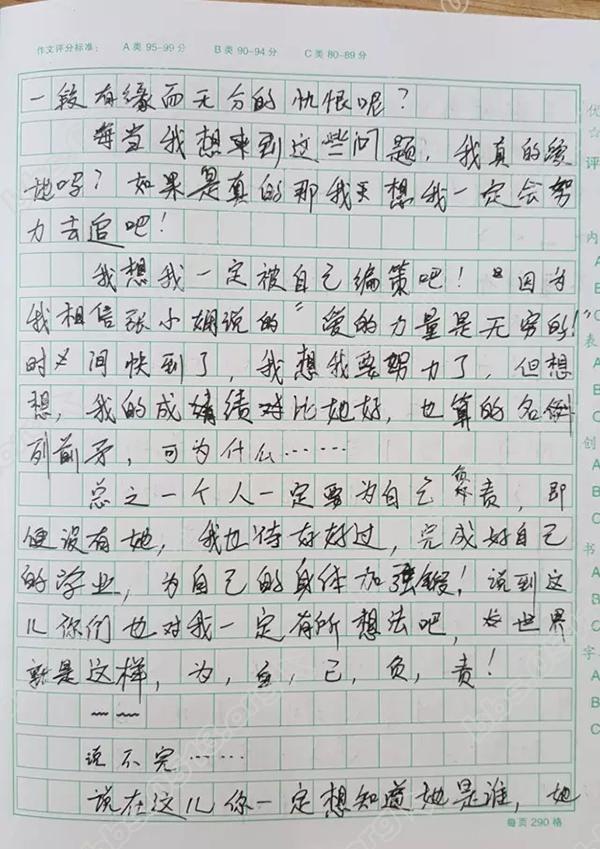 作文评分标准： A类 95-99分 B类 90-94分 C类 80-89分
一段有缘而无分的仇恨呢？
每当我想来到这些问题，我真的爱
她吗？如果是真的那我天想我一定会努
力去追吧！
我想我一定被自己编策吧！因为
我相信张小娴说的“爱的力量是无穷的！”
时间快到了，我想我要努力了，但想
想，我的成绩对比她好，也算的名列
列前矛，可为什么……
总之一个人一定要为自己负责，即
便没有她，我也待好好过，完成好自己
的学业，为自己的身体加强锻！说到这
儿你们也对我一定有所想法吧，世界
就是这样，为，自，己，负，责！
说不完……
说在这儿你一定想知道她是谁，她
每页 290 格
优
☆
评
内
A
B
C
表
A
B
C
创
A
B
C
书
A
B
C
字
A
B
C